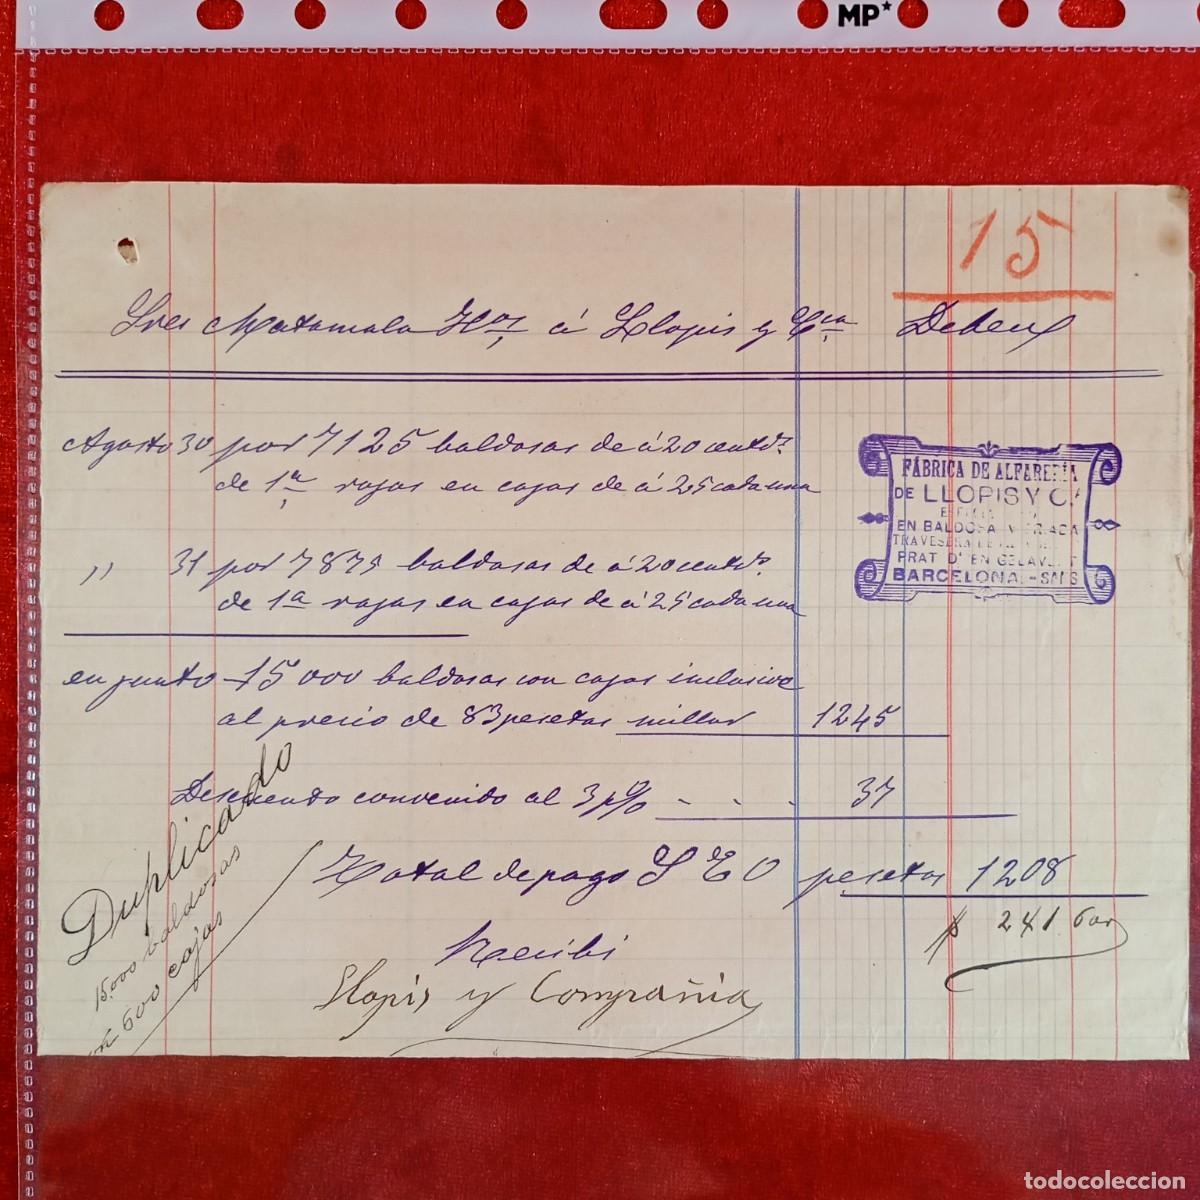 MP*
15
Sres Matamala Hos, á Llopis y Cia Deben
Agosto 30 por 7125 baldosas de á 20 centos.
de 1a, rojas en cajas de á 25 cada una
" 31 por 7875 baldosas de á 20 centos.
de 1a rojas en cajas de á 25 cada una
en junto 15000 baldosas con cajas inclusive
al precio de 83 pesetas millar 1245
Descuento convenido al 3 p% - - - 37
Total de pago S. E. O pesetas 1208
$ 241.60
Recibi
Llopis y Compañia
Duplicado
15.000 baldosas
600 cajas
FÁBRICA DE ALFARERÍA
DE LLOPIS Y Ca
EN BALDOSA
PRAT D'EN
BARCELONA-SANS
todocoleccion